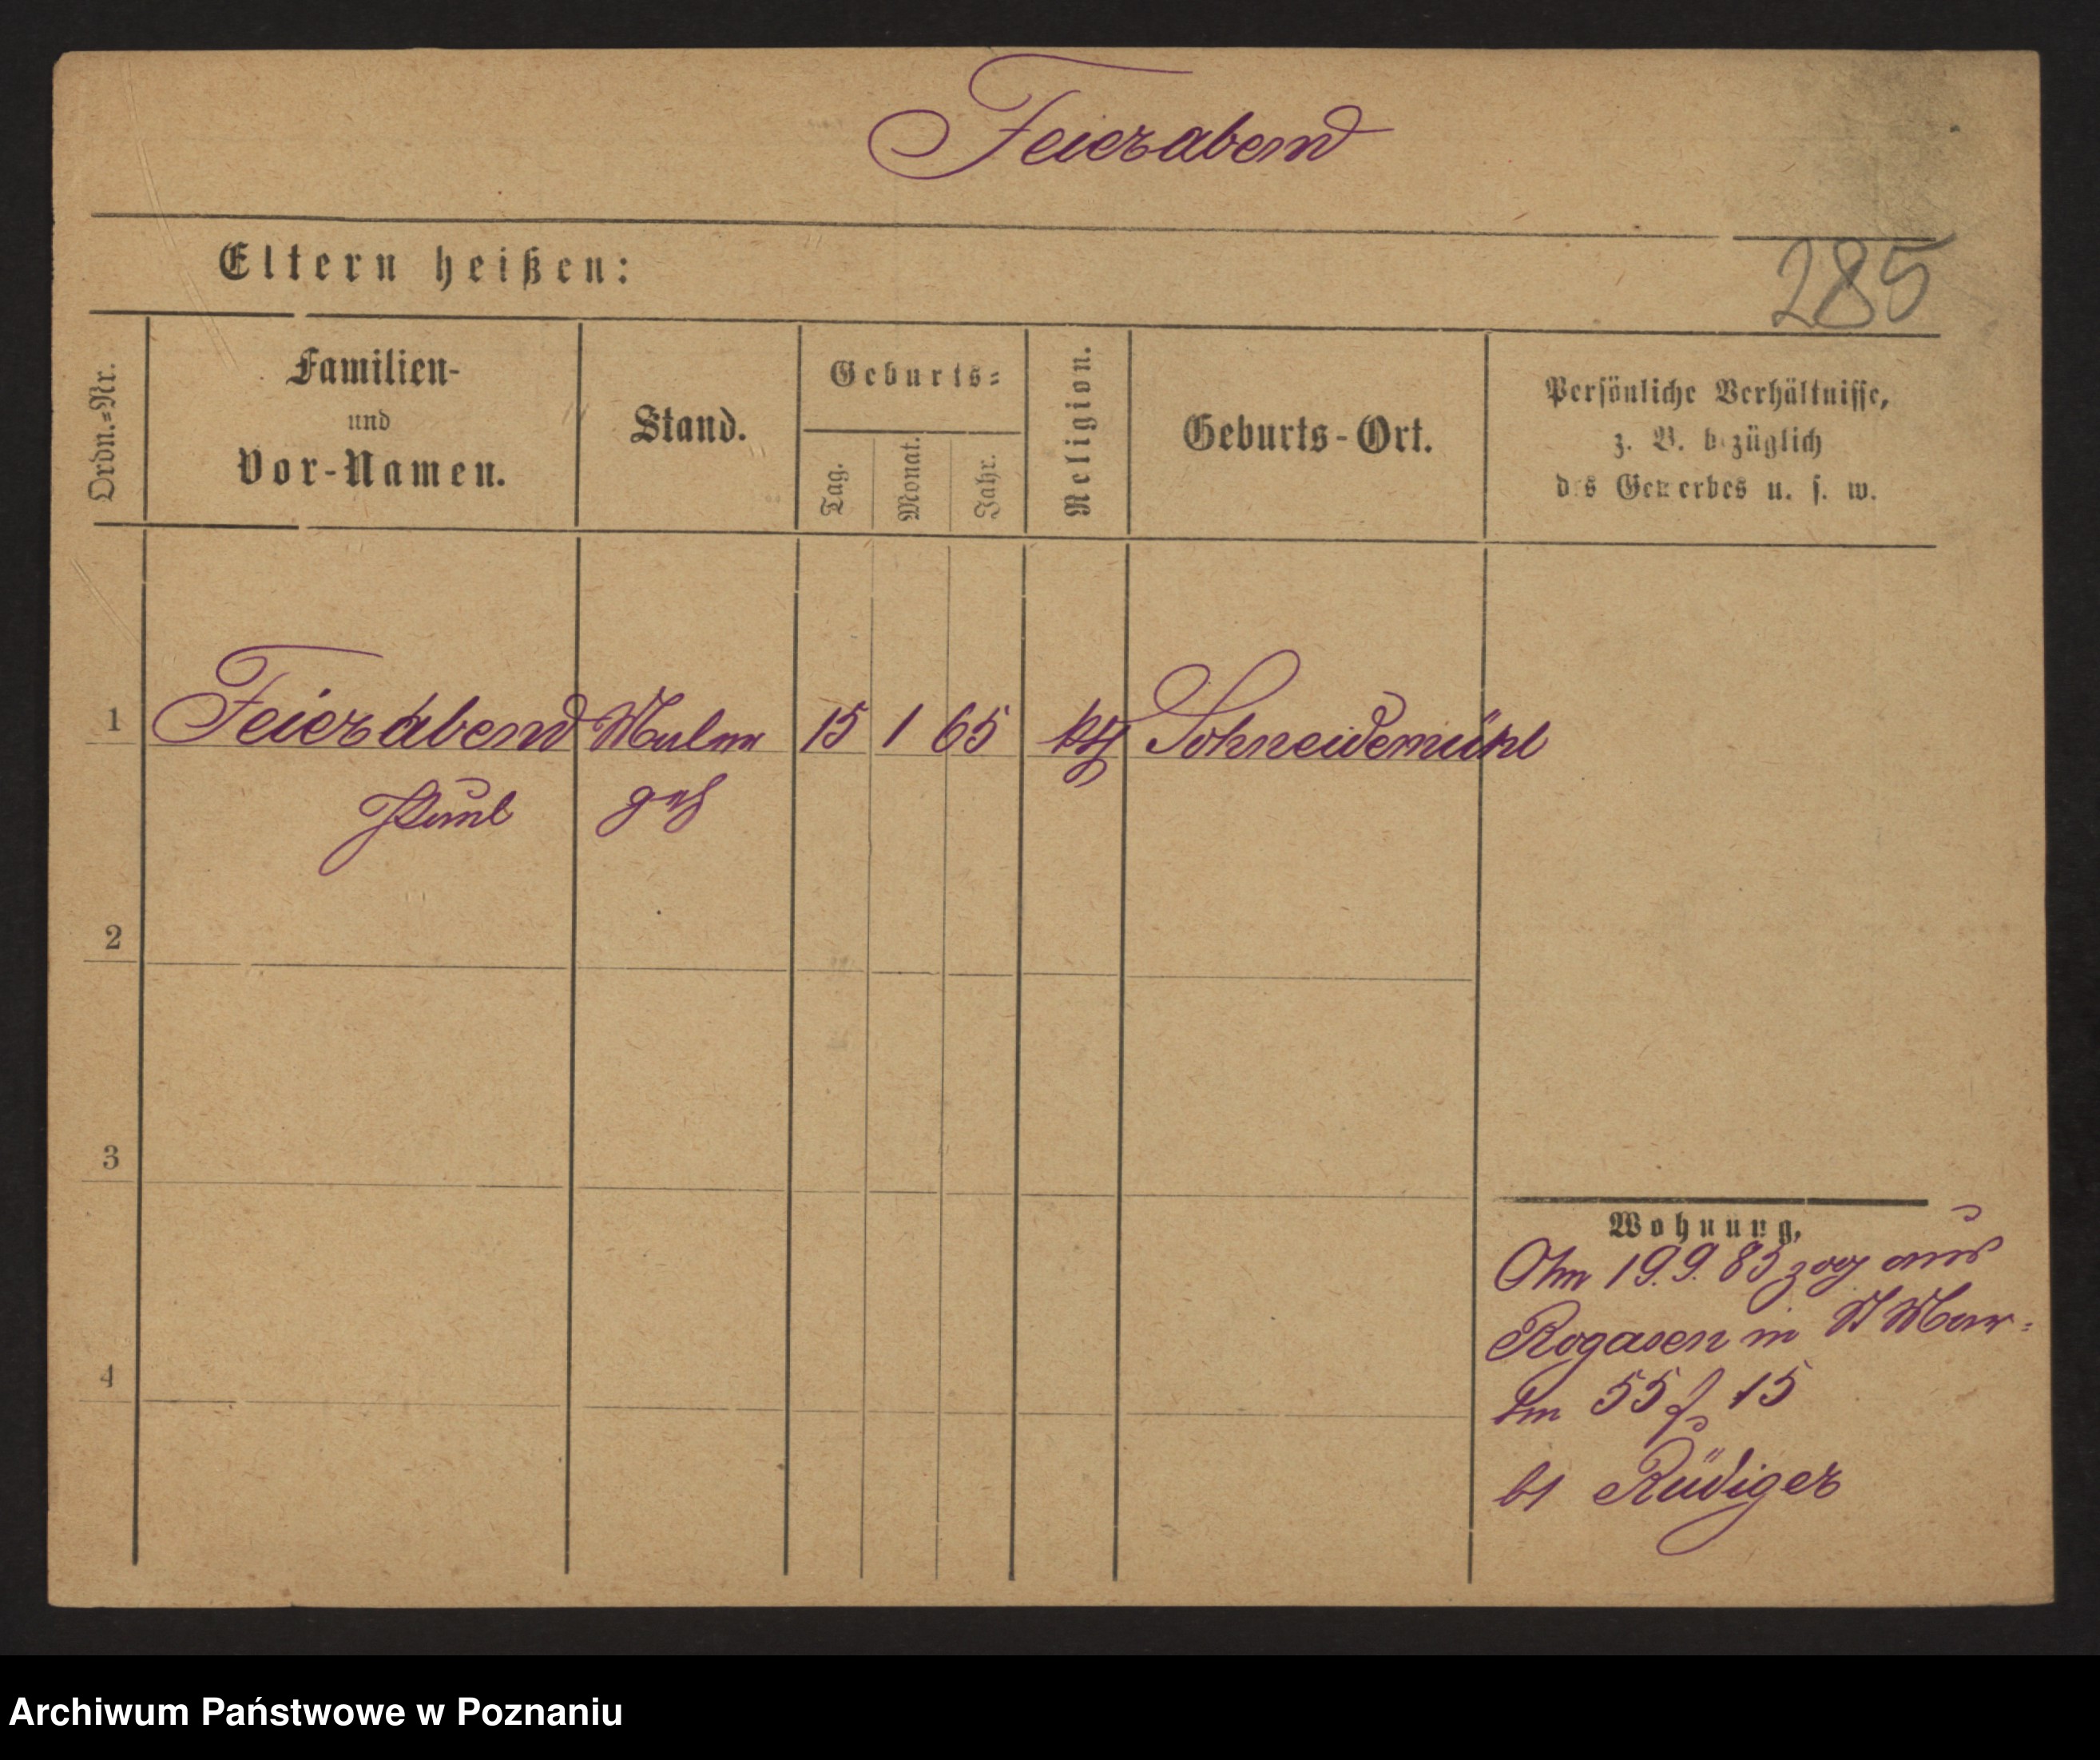 Feierabend
Eltern heißen:
285
Ordn.=Nr.
Familien-
und
Vor-Namen.
Stand.
Geburts=
Tag.
Monat.
Jahr.
Religion.
Geburts-Ort.
Persönliche Verhältnisse,
z. B. bezüglich
des Gewerbes u. s. w.
1 Feierabend Maler 15 1 65 kth Schneidemühl
Paul
2
3
4
Wohnung.
Am 19.9.85 zog aus
Rogasen in St Mar-
tin 55 f 15
bei Rüdiger
Archiwum Państwowe w Poznaniu